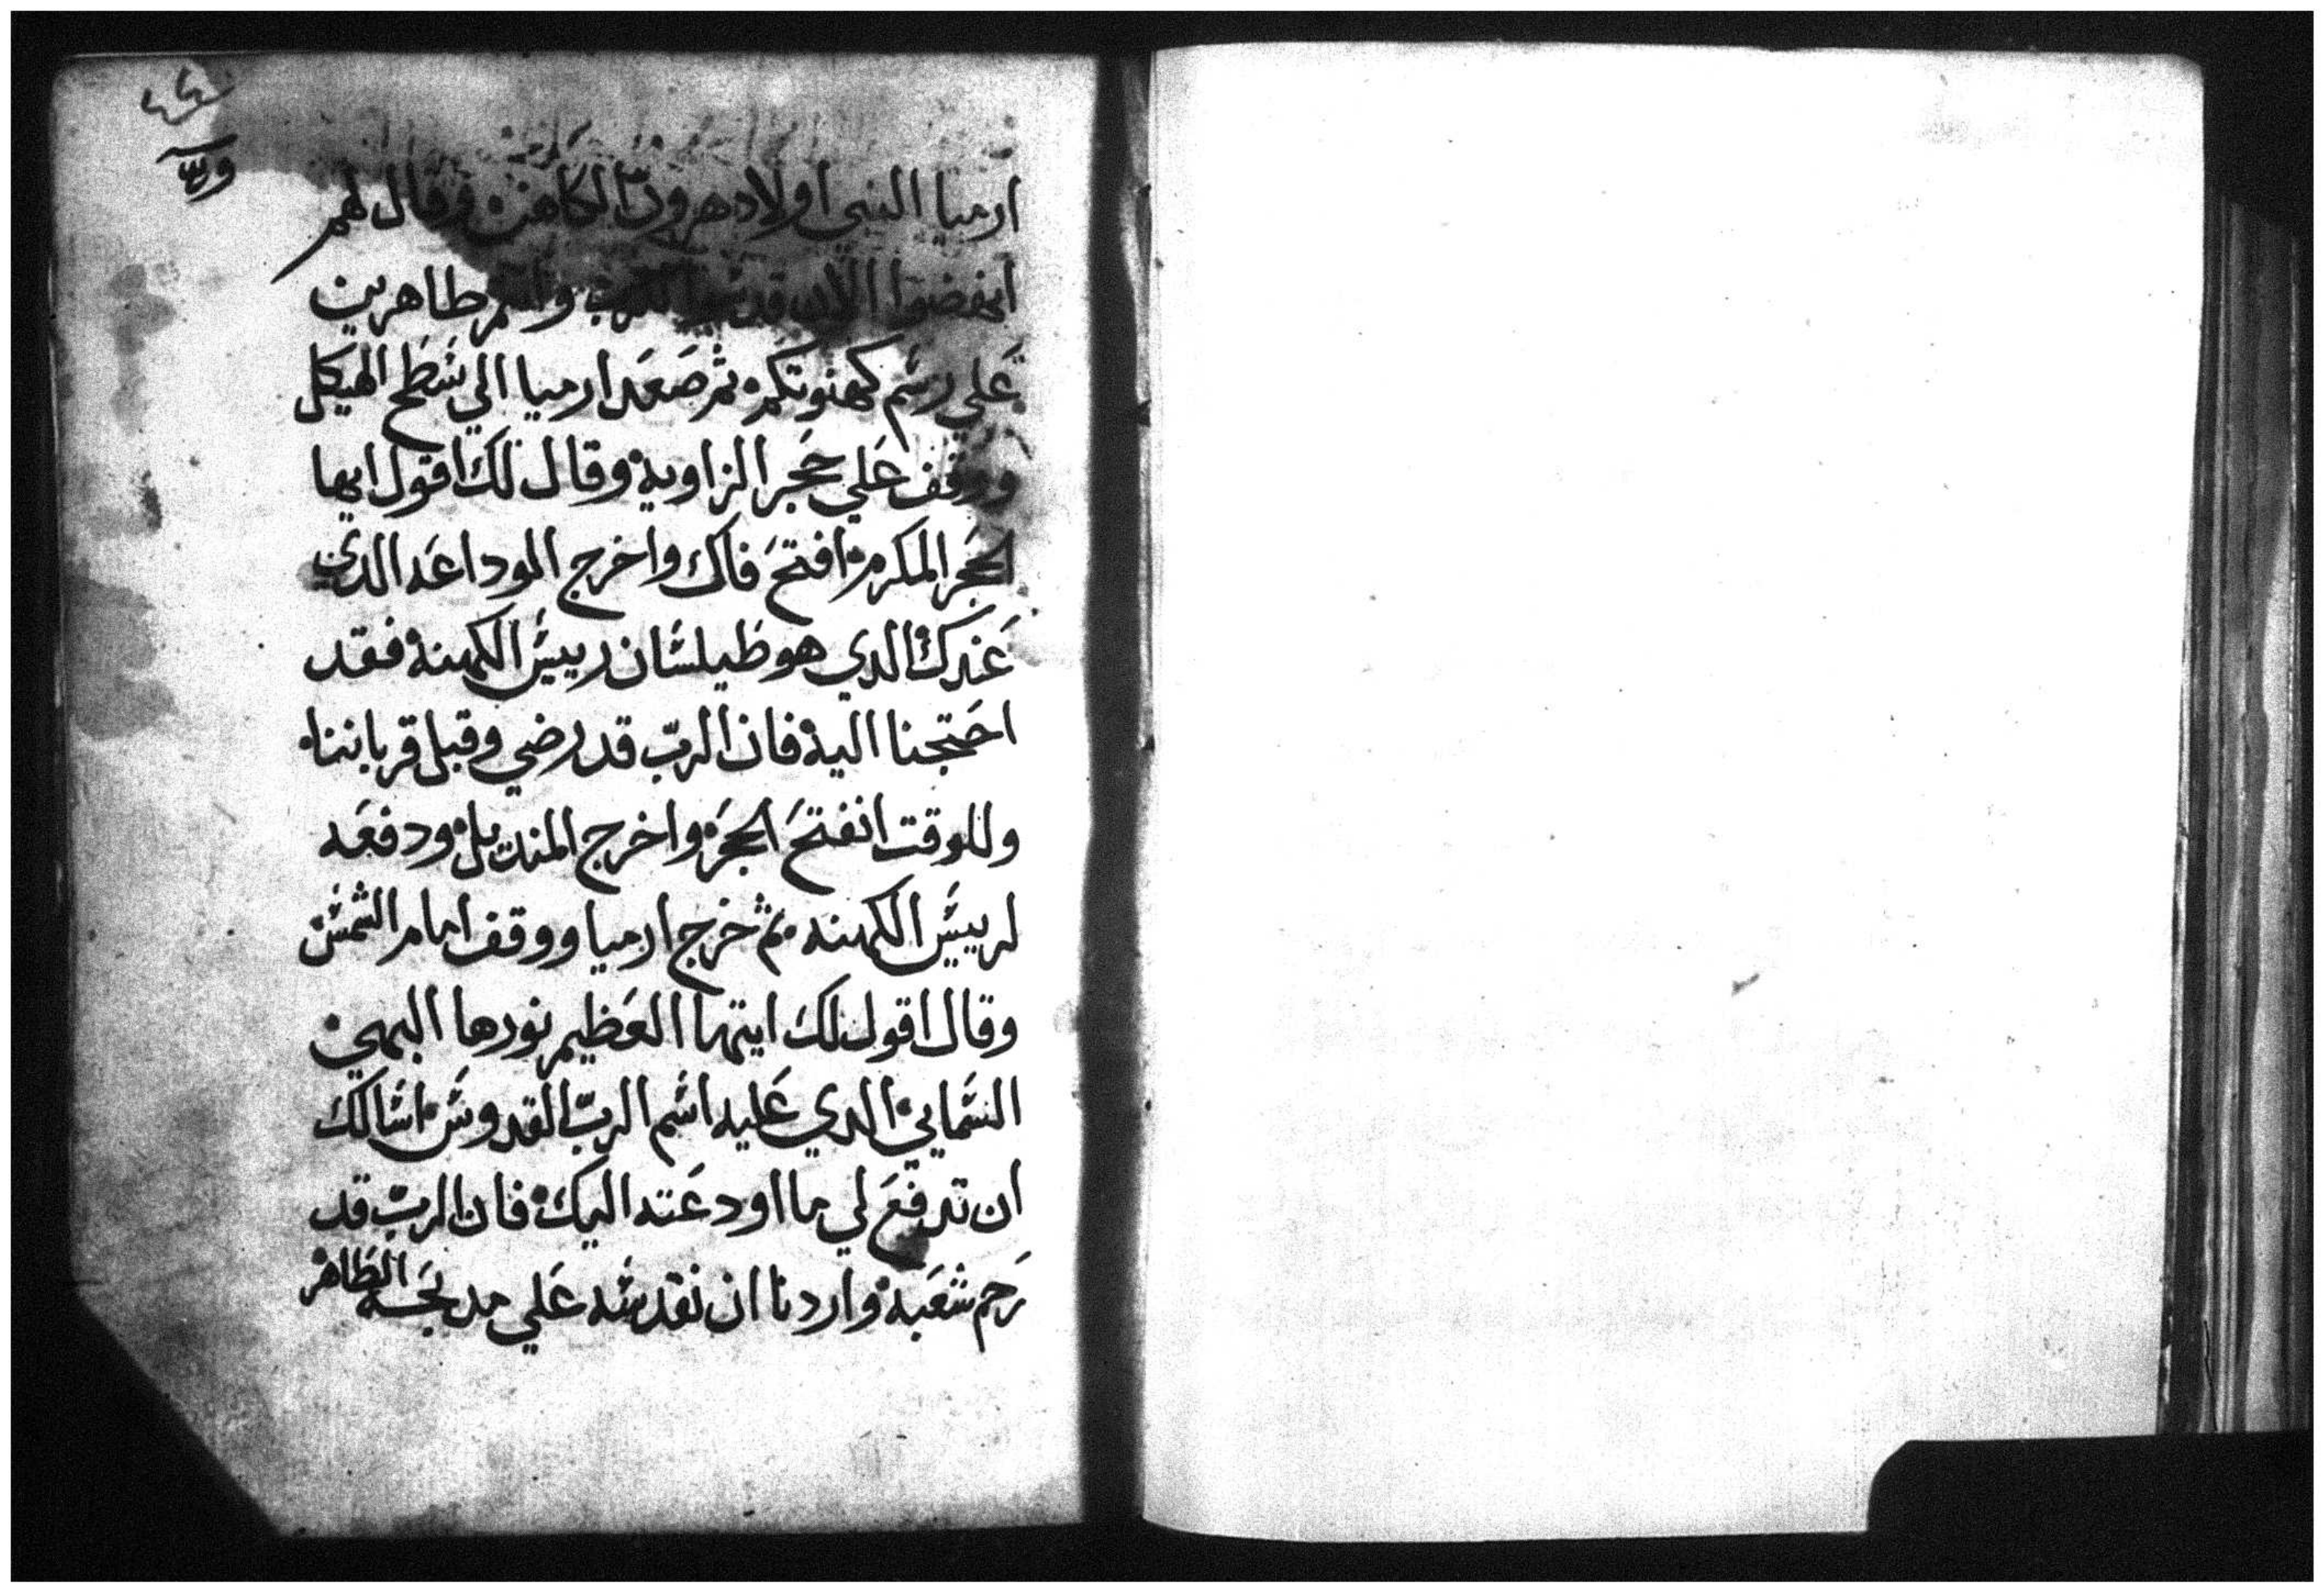 ارميا النبي اولاد هرون الكاهن وقال لهم
انهضوا الان قدسوا الرب وانتم طاهرين
علي رسم كهنوتكم ثم صعد ارميا الي شطح الهيكل
ووقف علي حجر الزاوية وقال لك اقول ايها
الحجر المكرم افتح فاك واخرج الموداعه الدي
عندك الدي هو طيلشان رييش الكهنة فقد
احتجنا اليه فان الرب قد رضي وقبل قرباننا
وللوقت انفتح الحجر واخرج المنديل ودفعه
لرييش الكهنه ثم خرج ارميا ووقف امام الشمش
وقال اقول لك ايتها العظيم نورها البهي
الشمايي الدي عليه اشم الرب القدوش اشالك
ان تدفع لي ما اودعته اليك فان الرب قد
رحم شعبه واردنا ان نقدشه علي مدبحه الطاهر